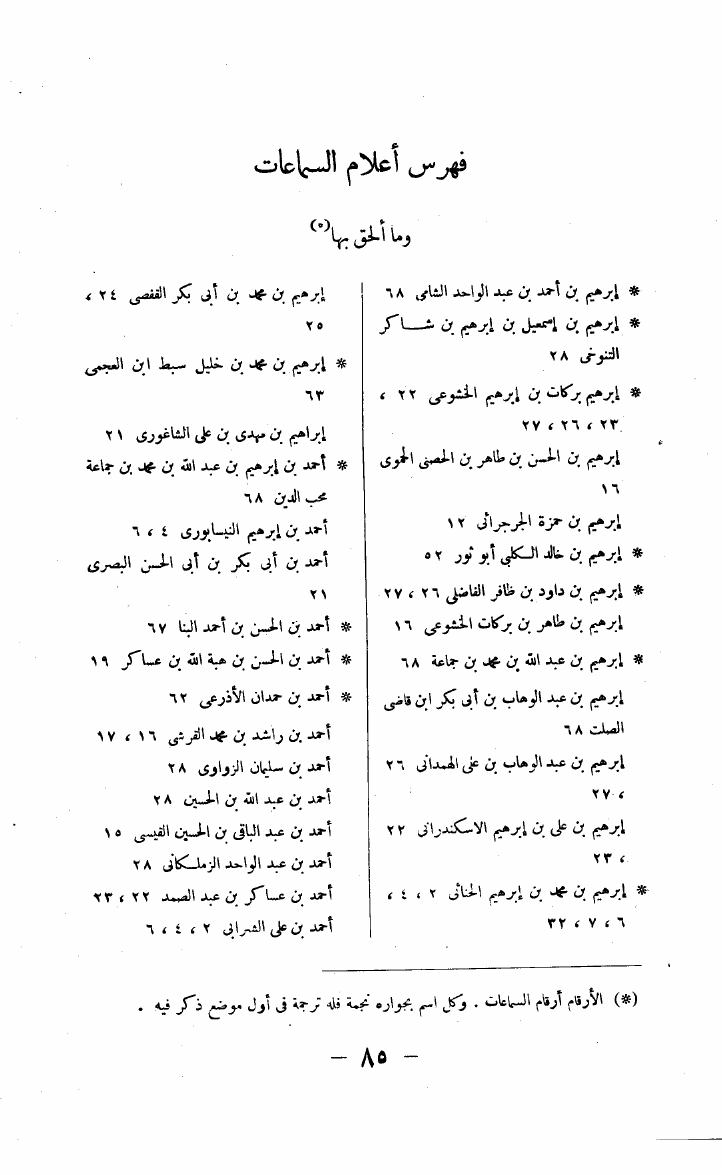 فهرس أعلام السماعات
وما ألحق بها(*)
* إبرهيم بن أحمد بن عبد الواحد الشامى ٦٨
* إبرهيم بن إسمعيل بن إبرهيم بن شاكر
التنوخى ٢٨
* إبرهيم بركات بن إبرهيم الخشوعى ٢٢ ،
٢٣ ، ٢٦ ، ٢٧
إبرهيم بن الحسن بن طاهر بن الحصنى الحموى
١٦
إبرهيم بن حمزة الجرجرائى ١٢
* إبرهيم بن خالد الكلبى أبو ثور ٥٢
* إبرهيم بن داود بن ظافر الفاضلى ٢٦ ، ٢٧
إبرهيم بن طاهر بن بركات الخشوعى ١٦
* إبرهيم بن عبد الله بن محمد بن جماعة ٦٨
إبرهيم بن عبد الوهاب بن أبى بكر ابن قاضى
الصلت ٦٨
إبرهيم بن عبد الوهاب بن على الهمدانى ٢٦
، ٢٧
إبرهيم بن على بن إبرهيم الاسكندرانى ٢٢
، ٢٣
* إبرهيم بن محمد بن إبرهيم الحنائى ٢ ، ٤ ،
٦ ، ٧ ، ٣٢
إبرهيم بن محمد بن أبى بكر القفصى ٢٤ ،
٢٥
* إبرهيم بن محمد بن خليل سبط ابن العجمى
٦٣
إبراهيم بن مهدى بن على الشاغورى ٢١
* أحمد بن إبرهيم بن عبد الله بن محمد بن جماعة
محب الدين ٦٨
أحمد بن إبرهيم النيسابورى ٤ ، ٦
أحمد بن أبى بكر بن أبى الحسن البصرى
٢١
* أحمد بن الحسن بن أحمد البنا ٦٧
* أحمد بن الحسن بن هبة الله بن عساكر ١٩
* أحمد بن حمدان الأذرعى ٦٢
أحمد بن راشد بن محمد القرشى ١٦ ، ١٧
أحمد بن سليمان الزواوى ٢٨
أحمد بن عبد الله بن الحسين ٢٨
أحمد بن عبد الباقى بن الحسين القيسى ١٥
أحمد بن عبد الواحد الزملكانى ٢٨
أحمد بن عساكر بن عبد الصمد ٢٢ ، ٢٣
أحمد بن على الشرابى ٢ ، ٤ ، ٦
(*) الأرقام أرقام السماعات . وكل اسم بجواره نجمة فله ترجمة فى أول موضع ذكر فيه .
— ٨٥ —